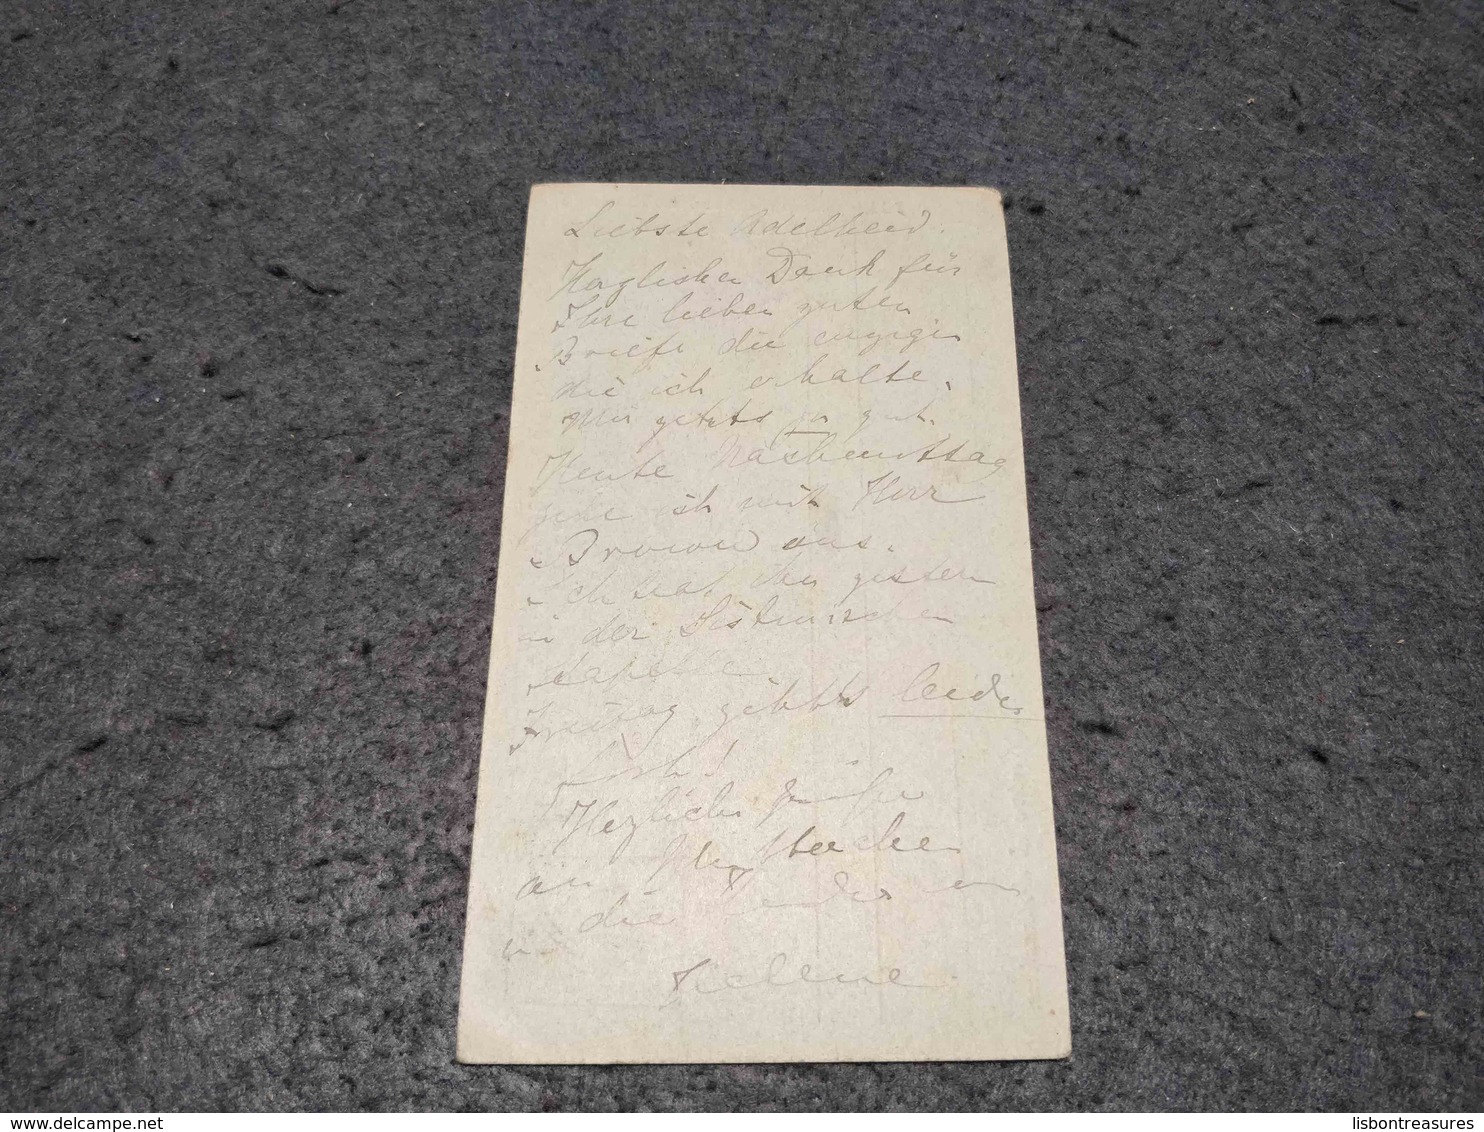 Liebste Adelheid.
Herzlichen Dank für
Ihre lieben guten
Briefe die einzigen
die ich erhalte.
Mir gehts ja gut.
Heute Nachmittag
gehe ich mit Herr
aus.
Ich sah ihn gestern
in der Sixtinischen
Kapelle.
Freitag gibts leider
Herzliche Grüße
an
u. die
Helene.
delcampe.net
lisbontreasures